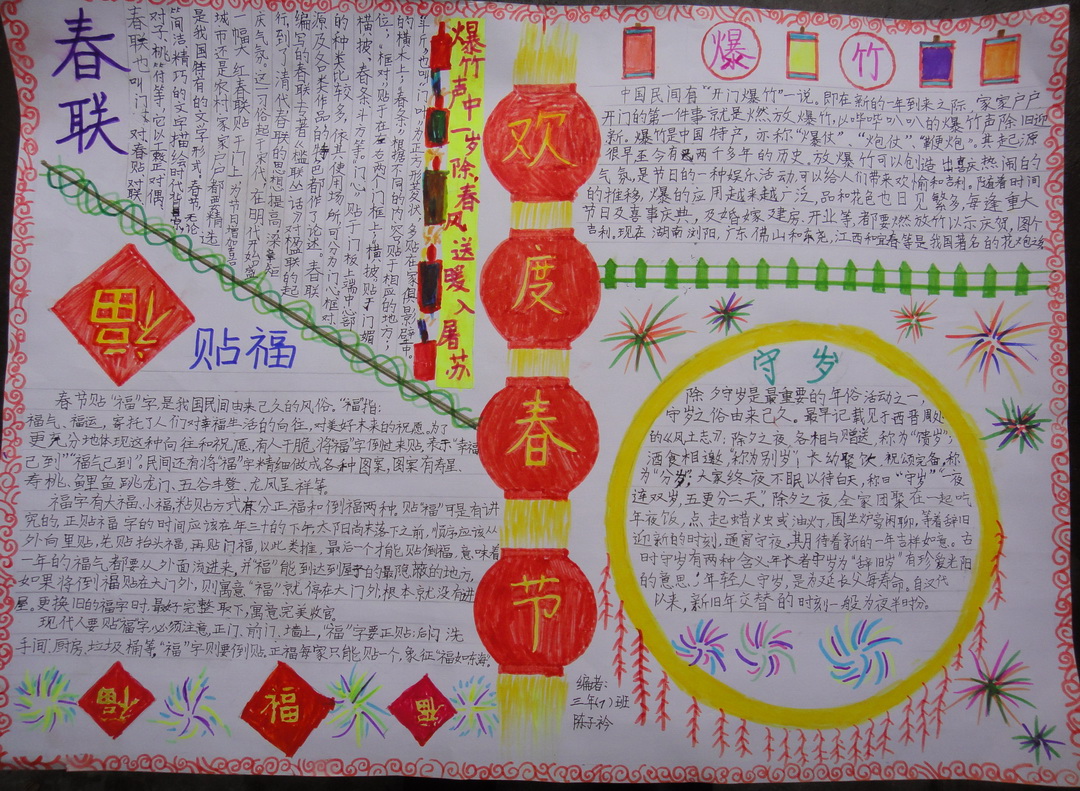 春联
春联也叫门
对春贴对联
对子、桃符等,它以工整、对偶、
简洁、精巧的文字描绘时代背景
是我国特有的文字形式。春节,无论
城市还是农村,家家户户都要精选
一幅大红春联贴于门上,为节日增加喜
庆气氛。这一习俗起于宋代,在明代开始盛
行,到了清代,春联的思想
编写的春联专著《楹联丛话》对楹联的起
源及各类作品的特色都作了论述。春联
的种类比较多,依其使用场所,可分为门心、框对、
横披、春条、斗方等。“门心”贴于门板上端中心部
位;“框对”贴于左右两个门框上;“横披”贴于门媚
的横木上;“春条”根据不同的内容贴于相应的地方;
也叫“门叶”,为正方形菱状,多贴在家俱、影壁中。
爆竹声中一岁除,春风送暖入屠苏
欢度春节
爆竹
中国民间有“开门爆竹”一说。即在新的一年到来之际,家家户户
开门的第一件事就是燃放爆竹,以哔哔叭叭的爆竹声除旧迎
新。爆竹是中国特产,亦称“爆仗”、“炮仗”、“鞭炮”。其起源
很早,至今有两千多年的历史。放爆竹可以创造出喜庆热闹的
气氛,是节日的一种娱乐活动,可以给人们带来欢愉和吉利。随着时间
的推移,爆竹的应用越来越广泛,品和花色也日见繁多,每逢重大
节日及喜事庆典,及婚嫁、建房、开业等,都要燃放竹以示庆贺,图个
吉利。现在,湖南浏阳,广东佛山和东尧,江西和宜春等是我国著名的花
福
贴福
春节贴“福”字,是我国民间由来已久的风俗。“福”指:
福气、福运,寄托了人们对幸福生活的向往,对美好未来的祝愿。为了
更充分地体现这种向往和祝愿,有人干脆将福字倒过来贴,表示“幸福
已到”“福气已到”。民间还有将“福”字精细做成各种图案,图案有寿星、
寿桃、鲤鱼跳龙门、五谷丰登、龙凤呈祥等。
福字有大福、小福,粘贴方式有分正福和倒福两种,贴福“可是有讲
究的,正贴福字的时间应该在年三十的下午太阳尚未落下之前,顺序应该从
外向里贴,先贴抬头福,再贴门福,以此类推,最后一个才能贴倒福,意味着
一年的福气都要从外面流进来,并“福”能到达到屋子的最隐蔽的地方,
如果将倒福贴在大门外,则寓意“福”就停在大门外根本就没有进
屋。更换旧的福字时,最好完整取下,寓意完美收官。
现代人要贴福字,必须注意,正门、前门、墙上,“福”字要正贴;后门、洗
手间、厨房、垃圾桶等“福”字则要倒贴,正福每家只能贴一个,象征“福如东海”。
福
福
福
守岁
除夕守岁是最重要的年俗活动之一,
守岁之俗由来已久。最早记载见于西晋周处
的《风土志》:除夕之夜,各相与赠送,称为“馈岁”;
酒食相邀,称为“别岁”;长幼聚饮,祝颂完备,称
为“分岁”;大家终夜不眠以待白天,称曰“守岁”“一夜
连双岁,五更分二天”除夕之夜,全家团聚在一起吃
年夜饭,点起蜡烛或油灯,围坐炉旁闲聊,等着辞旧
迎新的时刻,通宵守夜,其月待着新的一年吉祥如意。古
时守岁有两种含义:年长者守岁为“辞旧岁”有珍爱光阳
的意思;年轻人守岁,是为延长父母寿命。自汉代
以来,新旧年交替的时刻一般为夜半时份。
编者:
三年(7)班
陈子衿